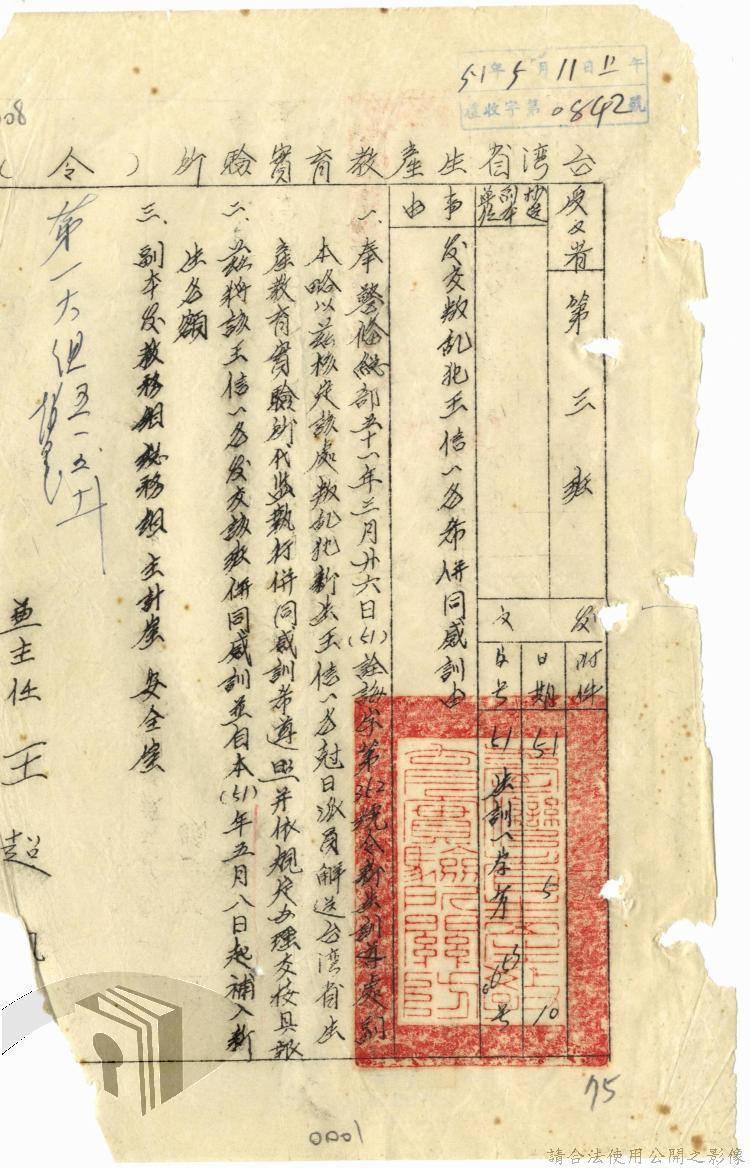 51年5月11日11午
收字第0842號
台湾省生產教育實驗所(令)
受文者
第三班
抄送副本單位
事由
发交叛乱犯王信一名希併同感訓由
附件
发文
日期
51 5 10
字号
51 訓 字第 0655 号
一、奉警備總部五十一年三月廿六日(51)詮海字第362號令新生訓導处副
本略以茲核定該处叛乱犯新生王信一名尅日派員解送台湾省生
產教育實驗所代監執行併同感訓希遵照并依規定办理交接具報
二、茲将該王信一名发交該班併同感訓並自本(51)年五月八日起補入新
生名額
三、副本发教務組 總務組 主計室 安全室
兼主任 王超凡
第一大組 五一、五、十一
008
0001
75
請合法使用公開之影像